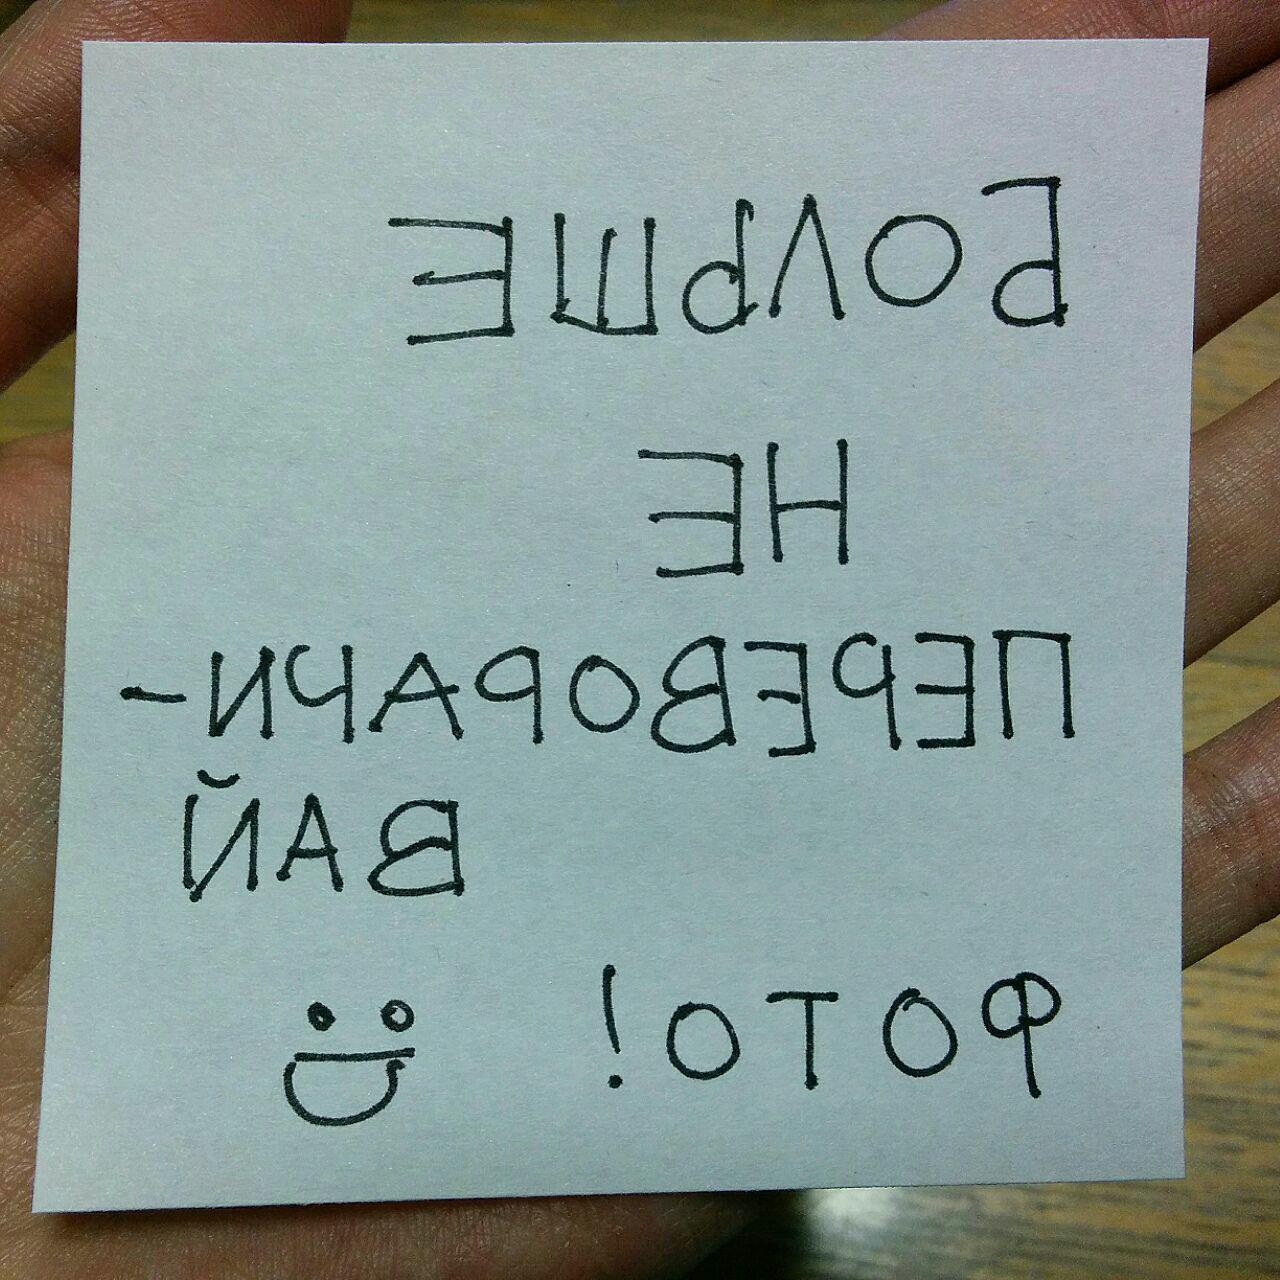 БОЛЬШЕ
НЕ
ПЕРЕВОРАЧИ-
ВАЙ
ФОТО!